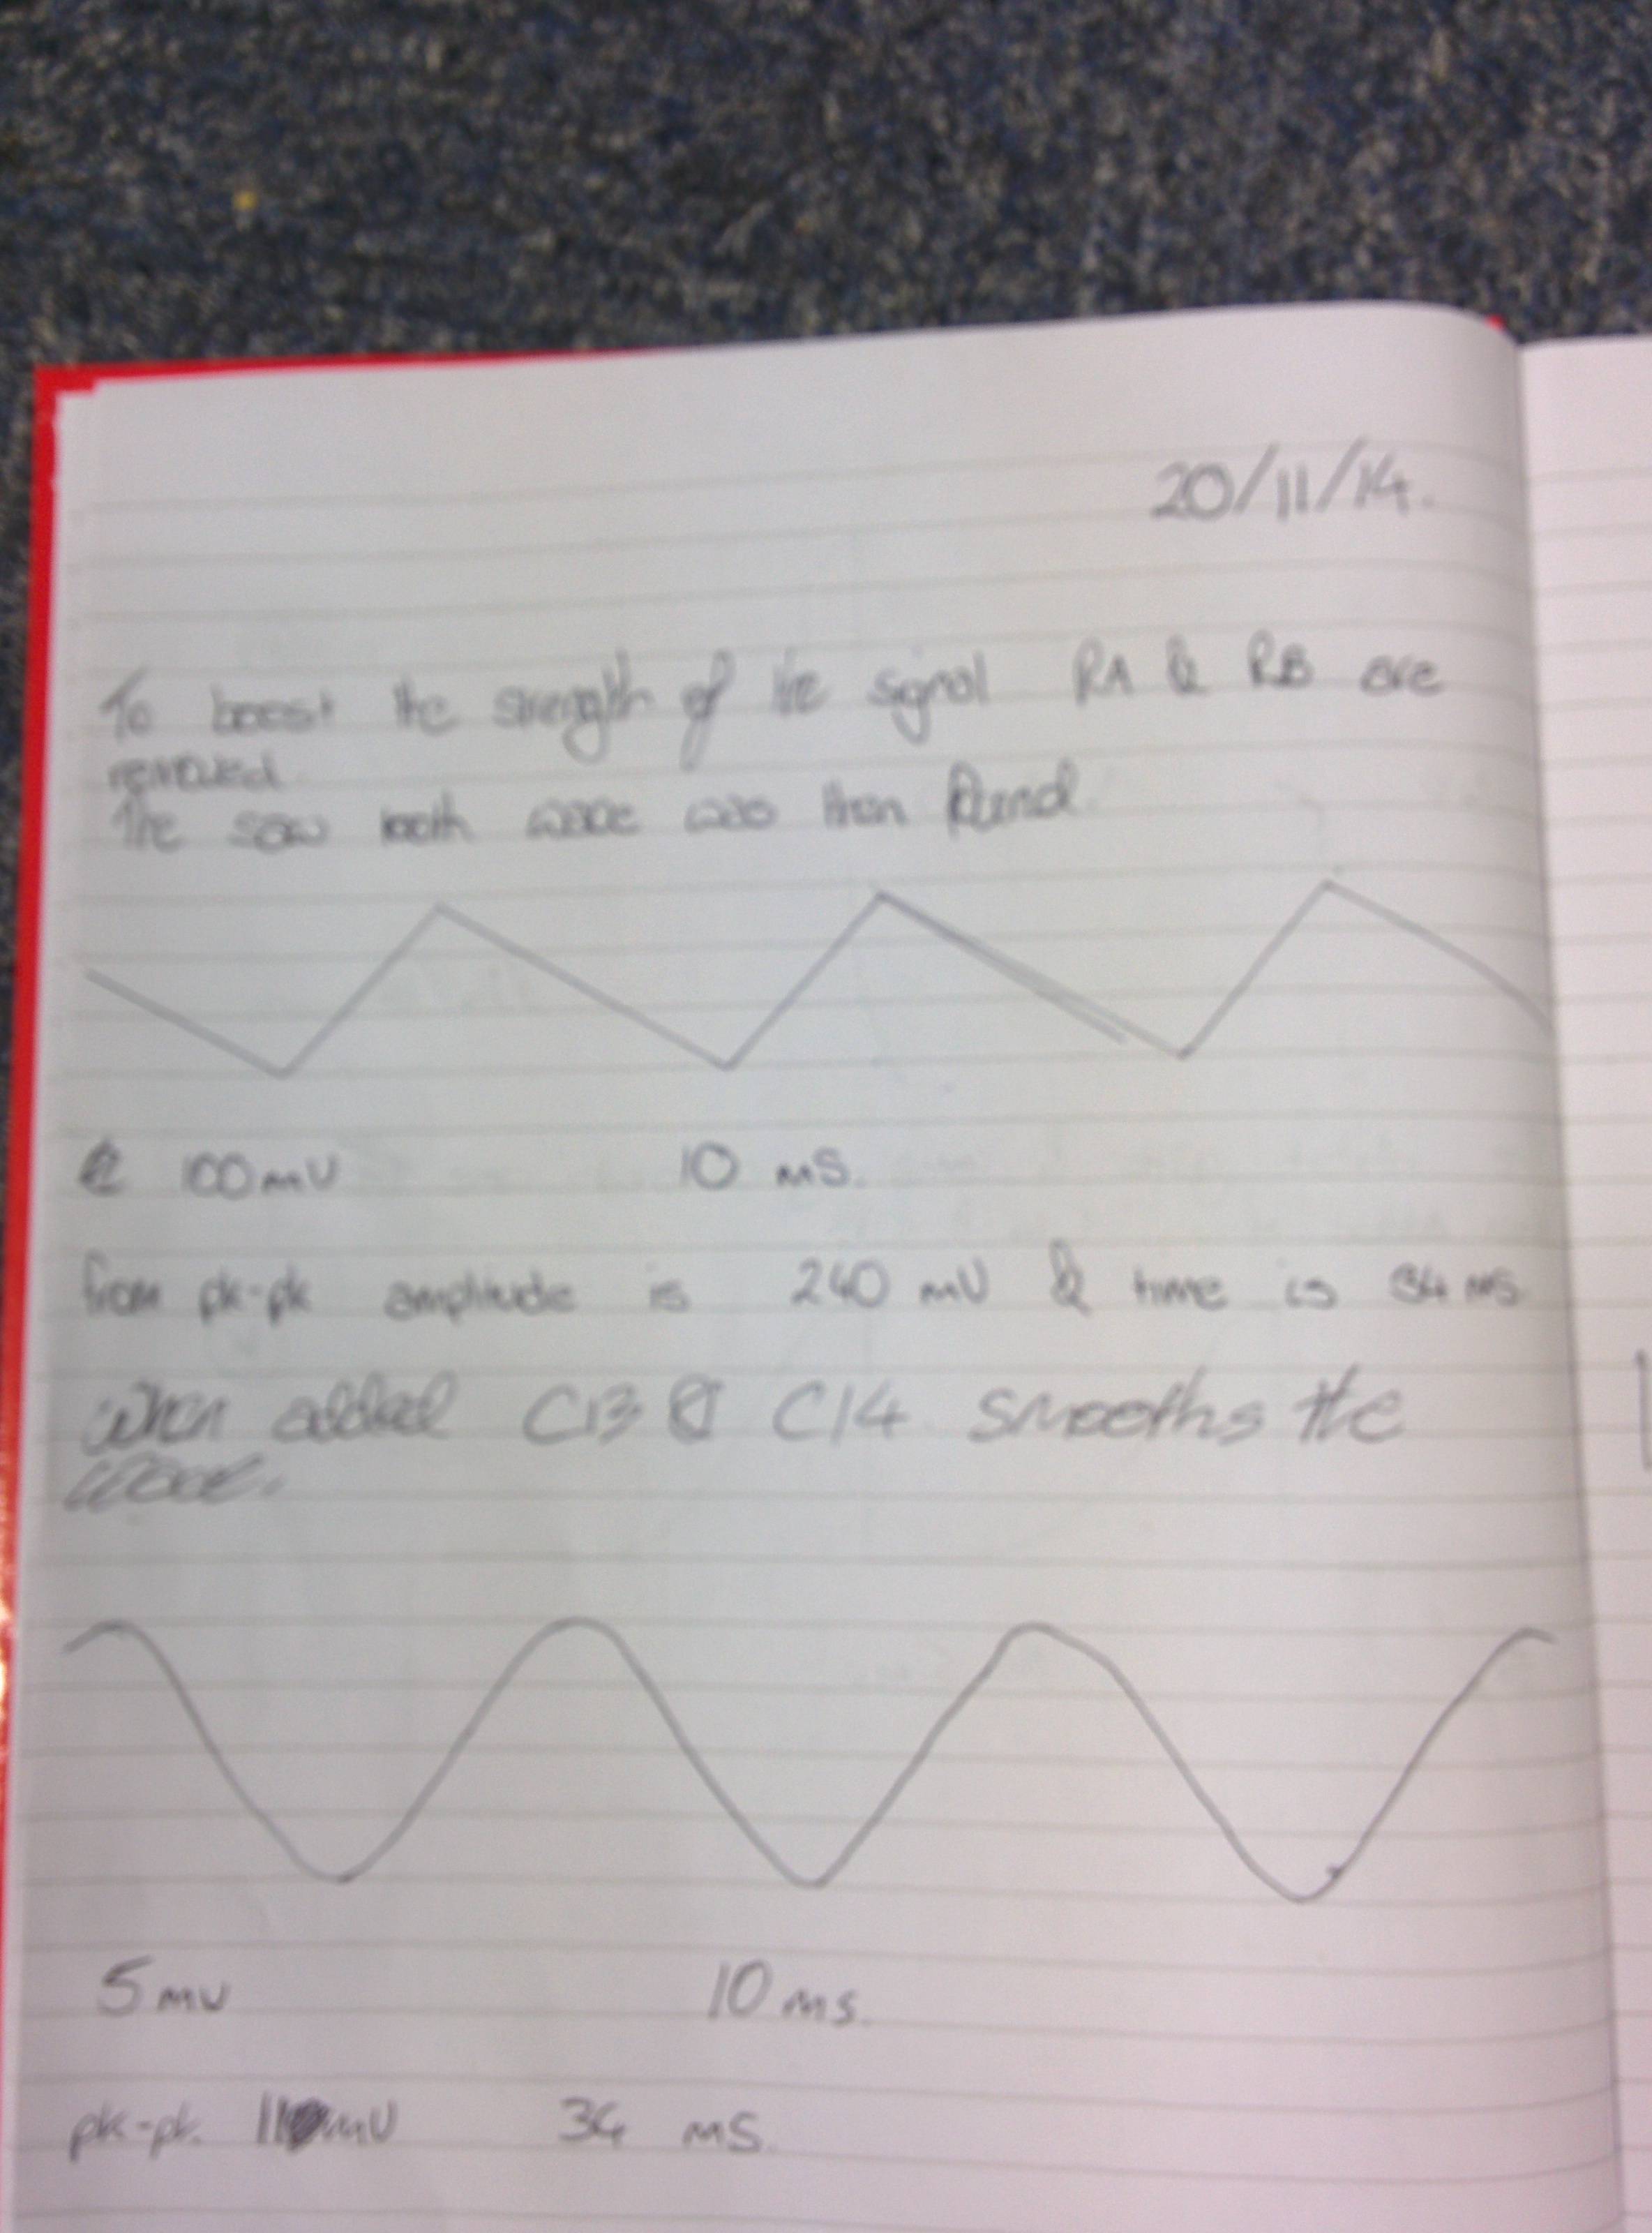 20/11/14.
To boost the strength of the signal RA & RB are
removed
The saw tooth wave was then found
100mV 10 mS.
from pk-pk amplitude is 240 mV & time is 34 ms.
when added C13 & C14 smooths the
wave.
5mV 10 ms.
pk-pk. 11 mV 34 ms.